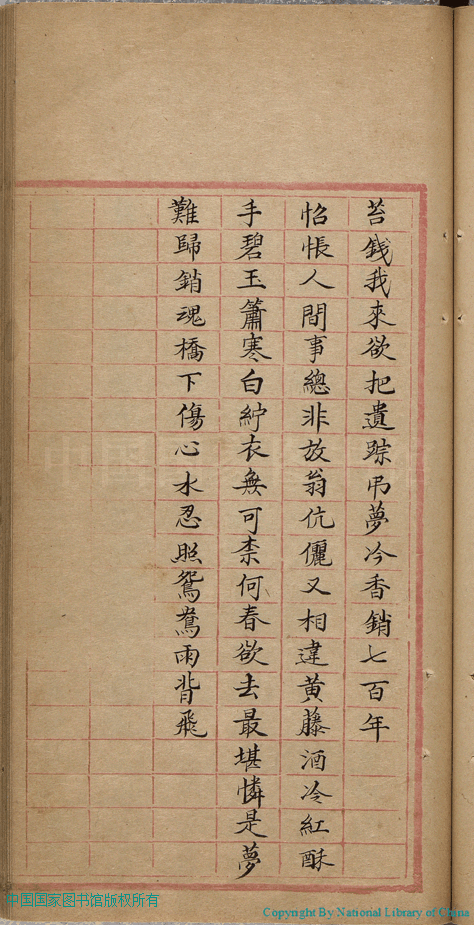 苔錢我來欲把遺踪弔夢冷香銷七百年
怊悵人間事總非放翁伉儷又相違黃藤酒冷紅酥
手碧玉簫寒白紵衣無可柰何春欲去最堪憐是夢
難歸銷魂橋下傷心水忍照鴛鴦兩背飛
中国国家图书馆版权所有
Copyright By National Library of China